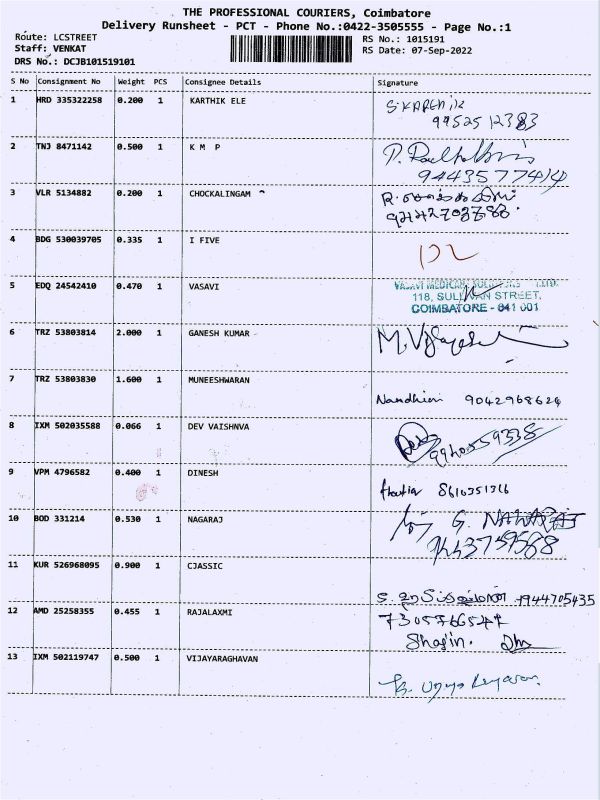 THE PROFESSIONAL COURIERS, Coimbatore
Delivery Runsheet - PCT - Phone No.:0422-3505555 - Page No.:1
Route: LCSTREET RS No.: 1015191
Staff: VENKAT RS Date: 07-Sep-2022
DRS No.: DCJB101519101
S No Consignment No Weight PCS Consignee Details Signature
1 HRD 335322258 0.200 1 KARTHIK ELE
9952512383
2 TNJ 8471142 0.500 1 K M P
9443577414
3 VLR 5134882 0.200 1 CHOCKALINGAM
4 BDG 530039705 0.335 1 I FIVE
5 EDQ 24542410 0.470 1 VASAVI VASAVI MEDICAL
118, SULLIVAN STREET,
COIMBATORE - 641 001
6 TRZ 53803814 2.000 1 GANESH KUMAR
7 TRZ 53803830 1.600 1 MUNEESHWARAN
Nandhini 9042968624
8 IXM 502035588 0.066 1 DEV VAISHNVA
9 VPM 4796582 0.400 1 DINESH
8610351316
10 BOD 331214 0.530 1 NAGARAJ
G.
11 KUR 526968095 0.900 1 CJASSIC
9944705435
12 AMD 25258355 0.455 1 RAJALAXMI
Shafin.
13 IXM 502119747 0.500 1 VIJAYARAGHAVAN